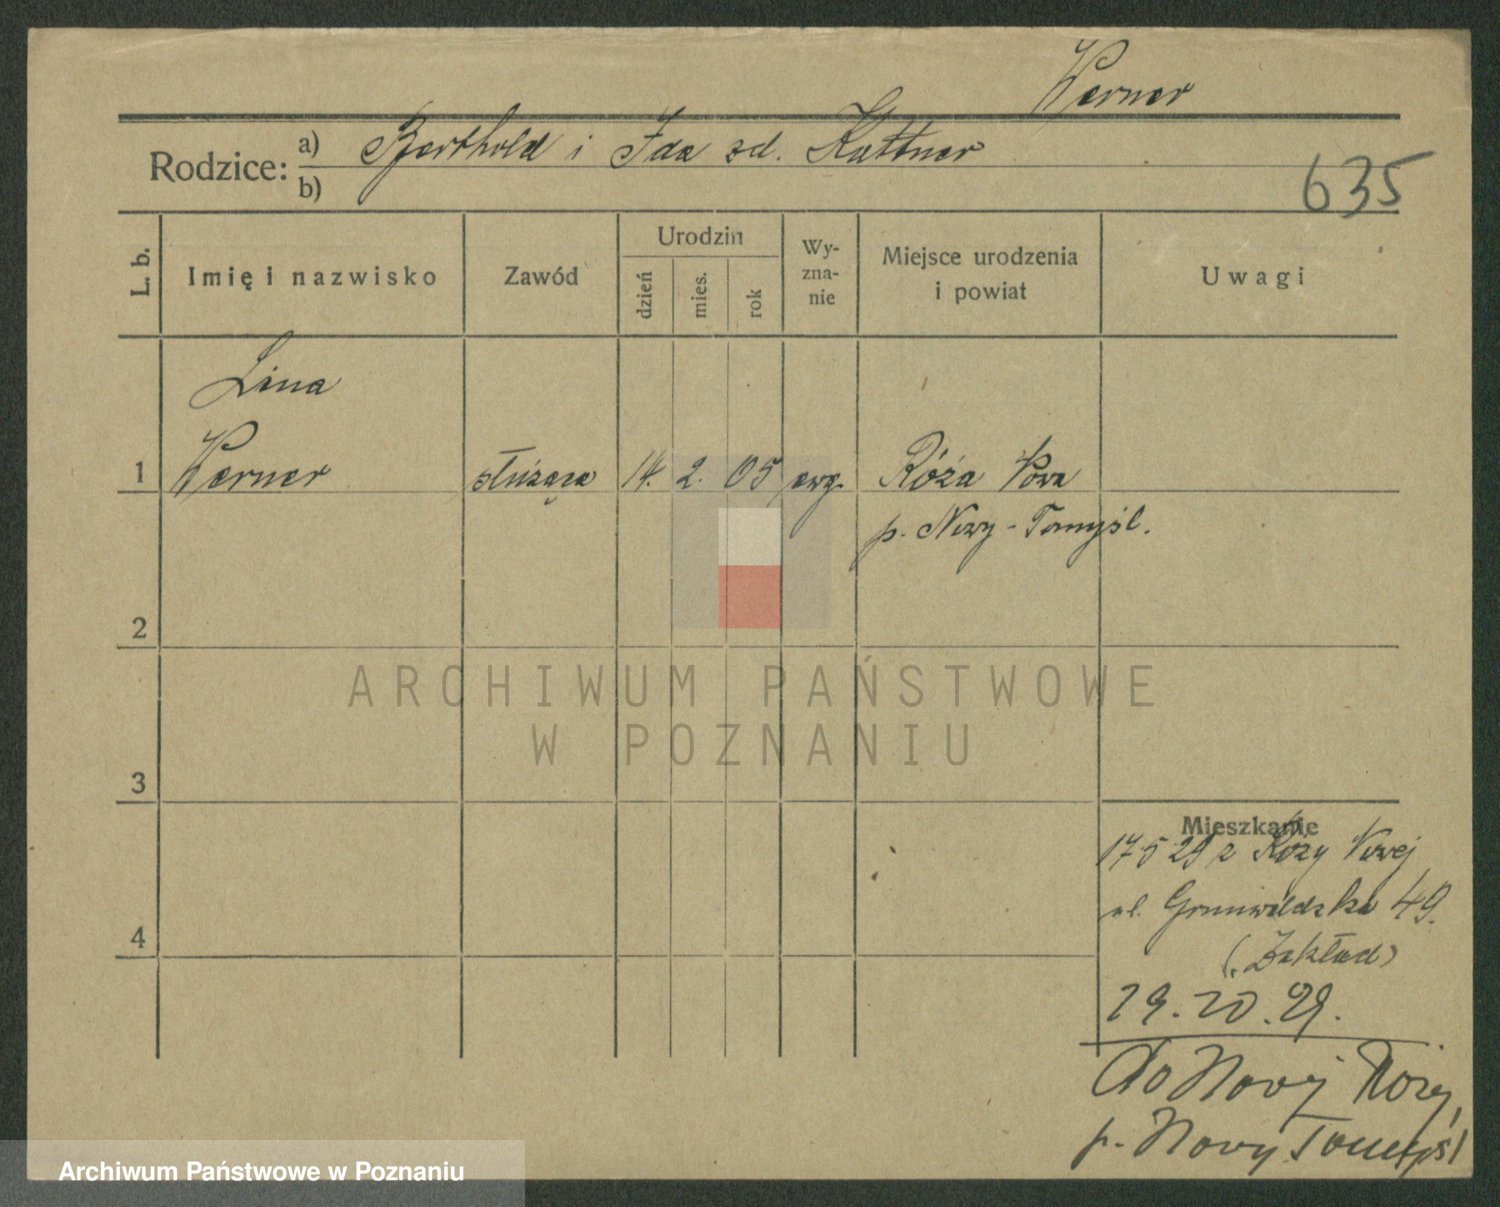 Werner
Rodzice: a) Berthold i Ida zd. Kuttner
b)
635
L. b.
Imię i nazwisko
Zawód
Urodzin
dzień
mies.
rok
Wy-
zna-
nie
Miejsce urodzenia
i powiat
Uwagi
Lina
1 Werner służąca 14. 2. 05 ewg. Róża Nowa
p. Nowy-Tomyśl.
2
3
4
Mieszkanie
17 5 29 z Róży Nowej
ul. Grunwaldzka 49.
(Zakład)
29. 10. 29.
do Nowej Róży,
p. Nowy Tomyśl
ARCHIWUM PAŃSTWOWE
W POZNANIU
Archiwum Państwowe w Poznaniu